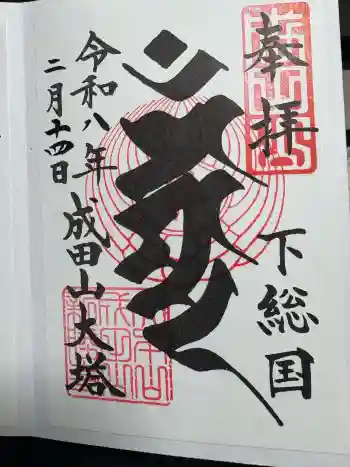 奉拝
下総国
成田山大塔
令和八年
二月十四日